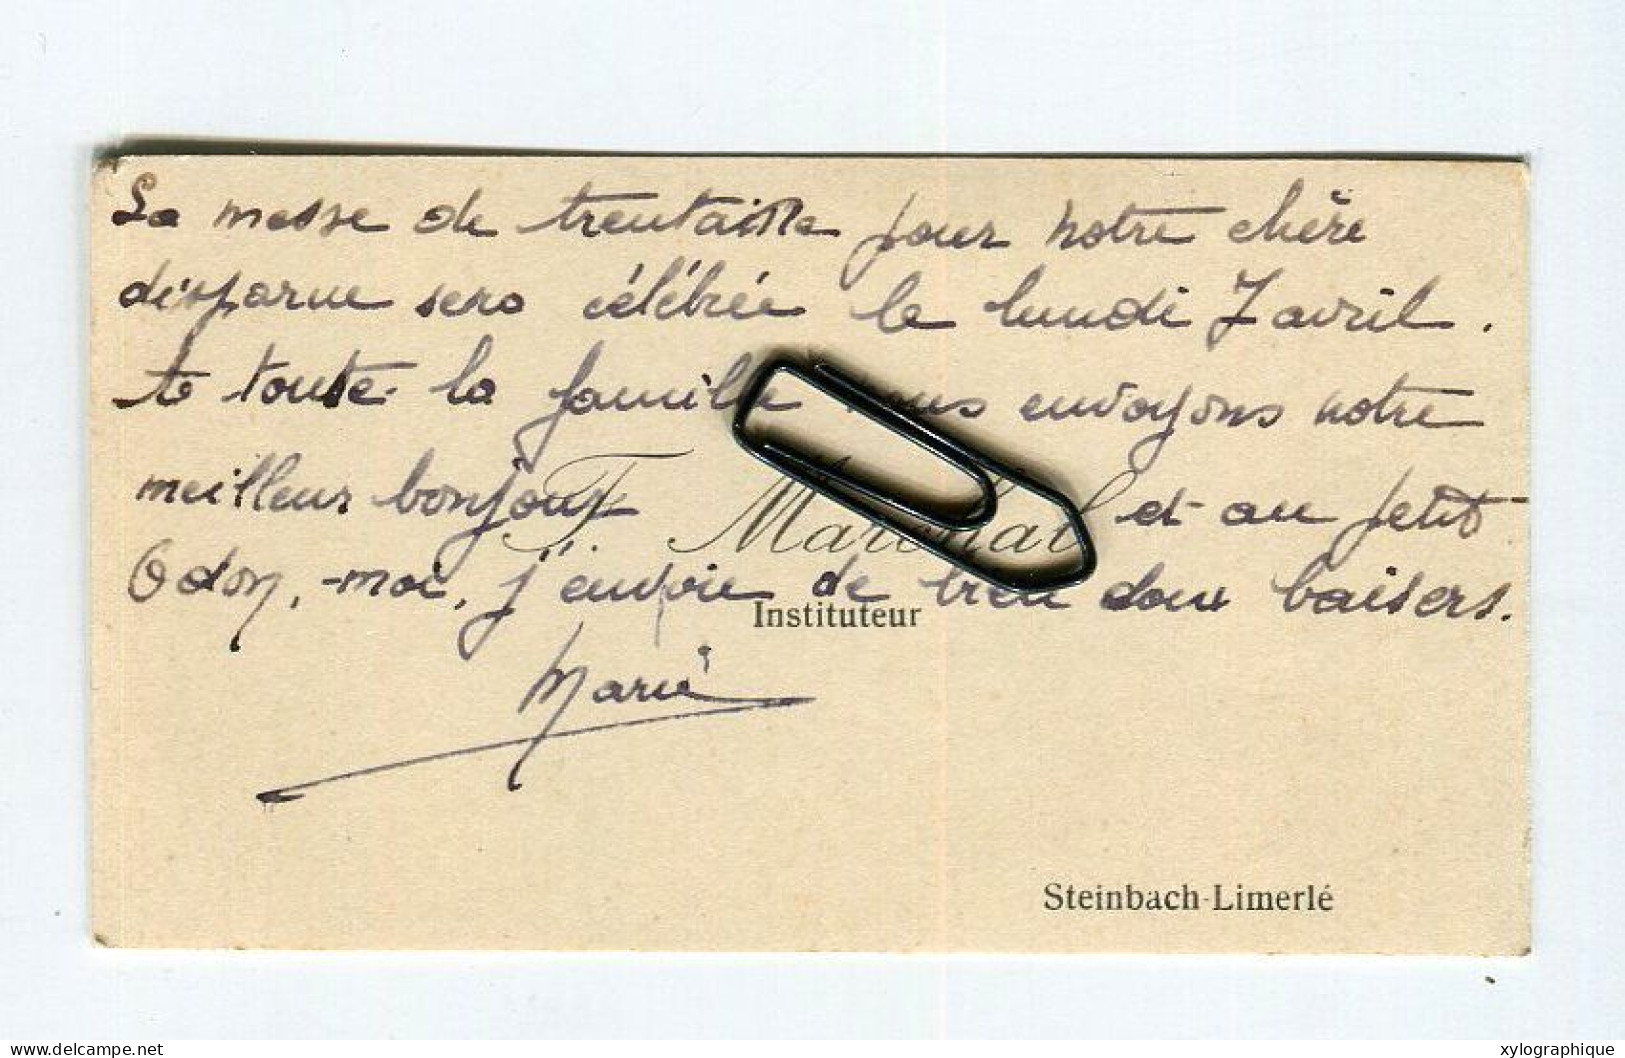 La messe de trentaine pour notre chère
disparue sera célébrée le lundi 7 avril.
A toute la famille nous envoyons notre
meilleur bonjour et au petit
F. Maréchal
Odon, moi, j'envoie de bien doux baisers.
Instituteur
Marie
Steinbach-Limerlé
www.delcampe.net
xylographique